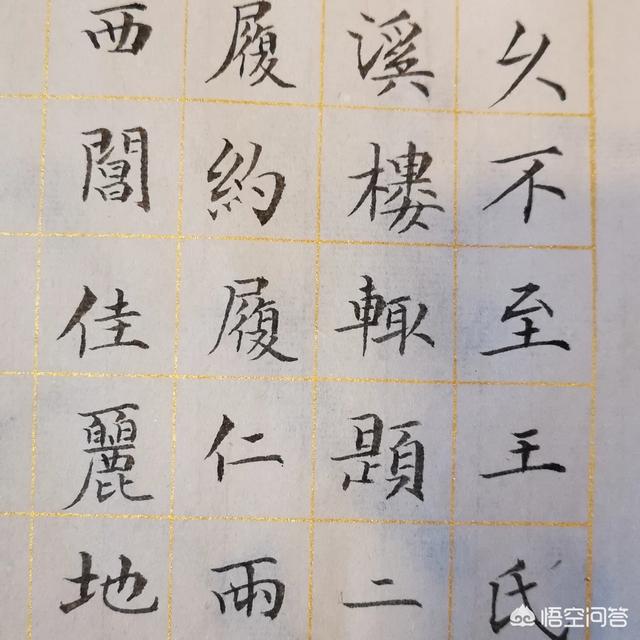 久不至王氏
溪樓輒題二
履約履仁雨
西閶佳麗地
悟空问答